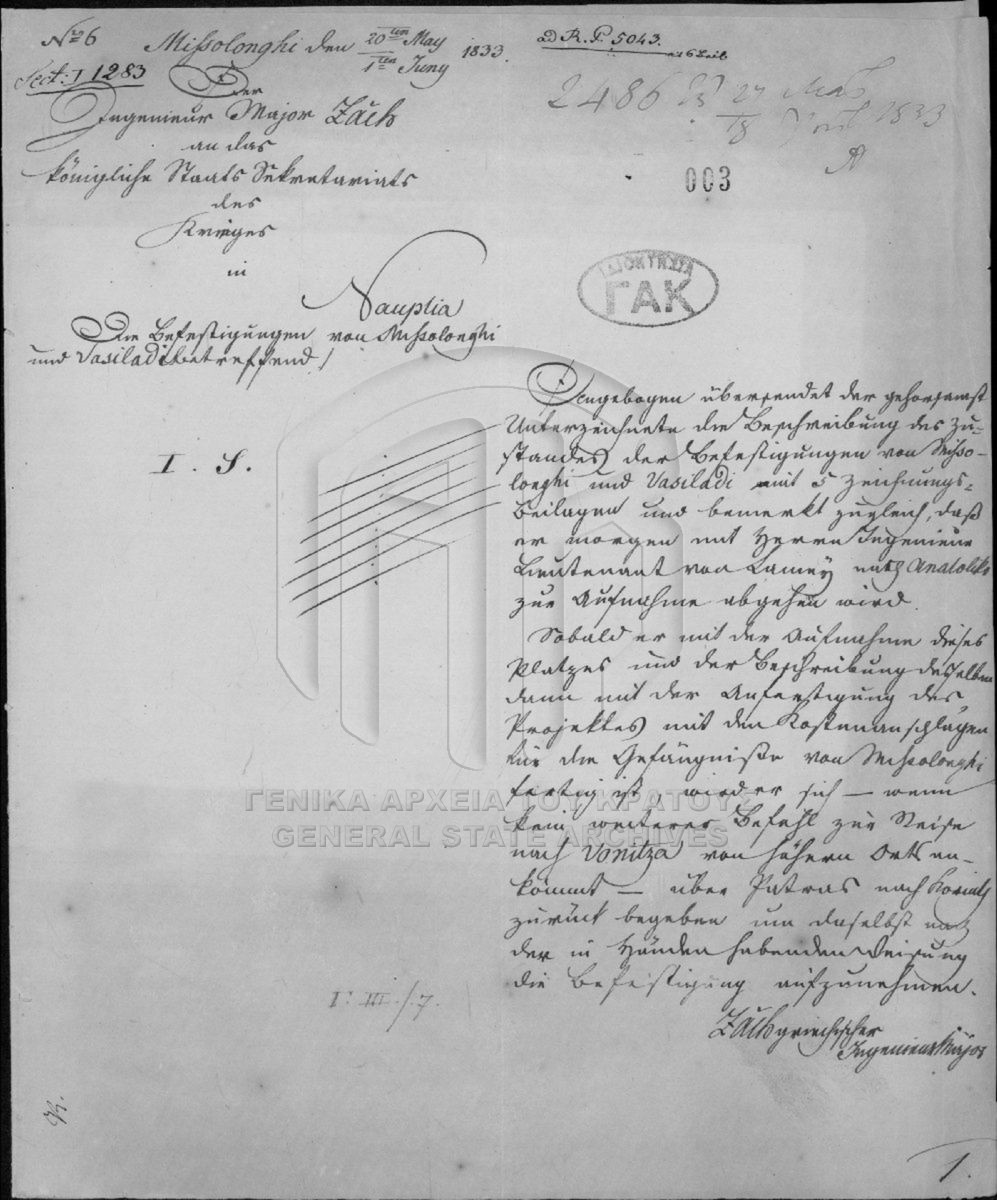 No 6
Missolonghi den 20ten May / 1ten Juny 1833.
ad R. P. 5043.
Sect: I 1283
2486
27 / 18 1833
003
Der
Ingenieur Major Zäch
an das
königliche Staats Sekretariats
des
Krieges
in
Nauplia
Die Befestigungen von Missolonghi
und Vasiladi betreffend /
ΓΑΚ
I. S.
Angebogen übersendet der gehorsamst
Unterzeichnete die Beschreibung des Zu-
standes der Befestigungen von Misso-
longhi und Vasiladi mit 5 Zeichnungs-
Beilagen und bemerkt zugleich, daß
er morgen mit Herrn Ingenieur
Lieutenant von Lamey nach Anatoliko
zur Aufnahme abgehen wird.
Sobald er mit der Aufnahme dieses
Platzes und der Beschreibung desselben
dann mit der Anfertigung des
Projektes mit den Kostenanschlägen
für die Gefängniße von Missolonghi
fertig ist, wird er sich – wenn
kein weiterer Befehl zur Reise
nach Vonitza von höhern Orts an-
kömmt – über Patras nach Korinth
zurück begeben um daselbst nach
der in Händen habenden Weisung
die Befestigung aufzunehmen.
Zäch griechischer
Ingenieur Major
I. III. /. 7.
1.
ΓΕΝΙΚΑ ΑΡΧΕΙΑ ΤΟΥ ΚΡΑΤΟΥΣ
GENERAL STATE ARCHIVES